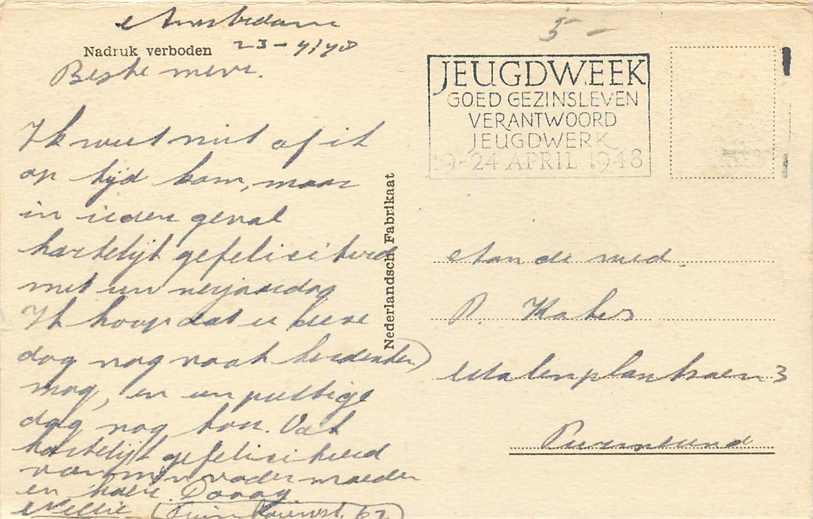 Amsterdam
Nadruk verboden 23-4/48
Beste mevr.
Ik weet niet of ik
op tijd kom, maar
in ieder geval
hartelijk gefeliciteerd
met uw verjaardag
Ik hoop dat u deze
dag nog vaak herdenken
mag, en een prettige
dag nog toe. Ook
hartelijk gefeliciteerd
van mijn vader moeder
en Daaag
Nellie 62
Nederlandsch Fabrikaat
5-
JEUGDWEEK
GOED GEZINSLEVEN
VERANTWOORD
JEUGDWERK
19-24 APRIL 1948
Aan de wed
P.
3
Purmerend